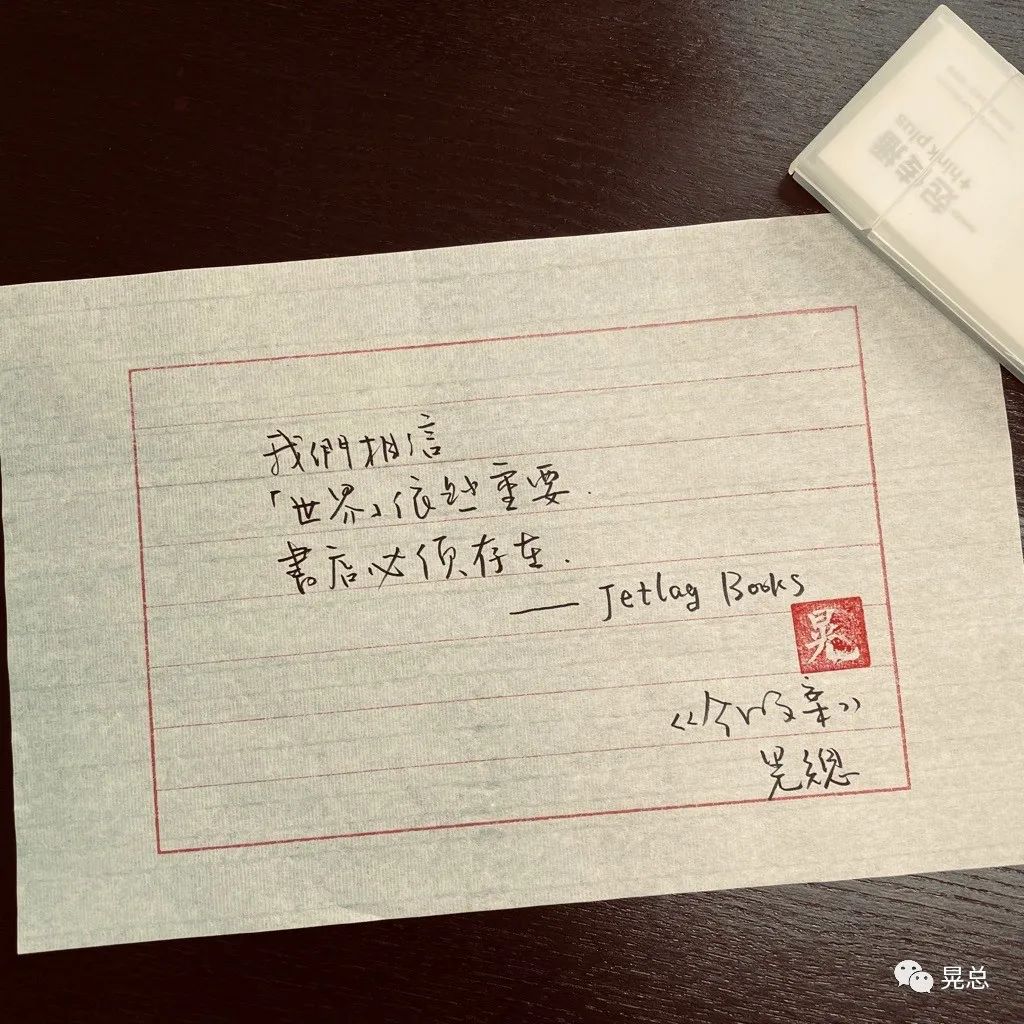 我們相信
「世界」依然重要.
書店必須存在.
—— Jetlag Books
晃
晃總
think plus
晃总